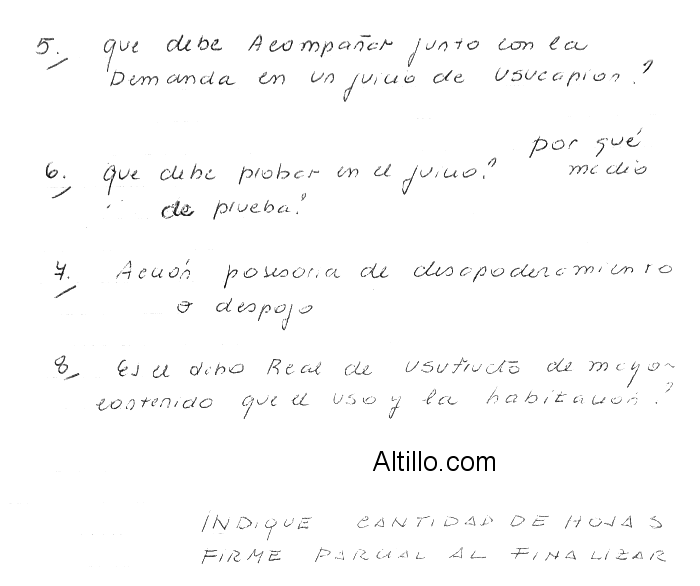 5. que debe Acompañar junto con la
Demanda en un juicio de usucapion?
6. que debe probar en el juicio? por qué medio
de prueba?
7. Acción posesoria de desapoderamiento
o despojo
8. Es el dcho Real de usufructo de mayor
contenido que el uso y la habitación?
Altillo.com
INDIQUE CANTIDAD DE HOJAS
FIRME PARCIAL AL FINALIZAR